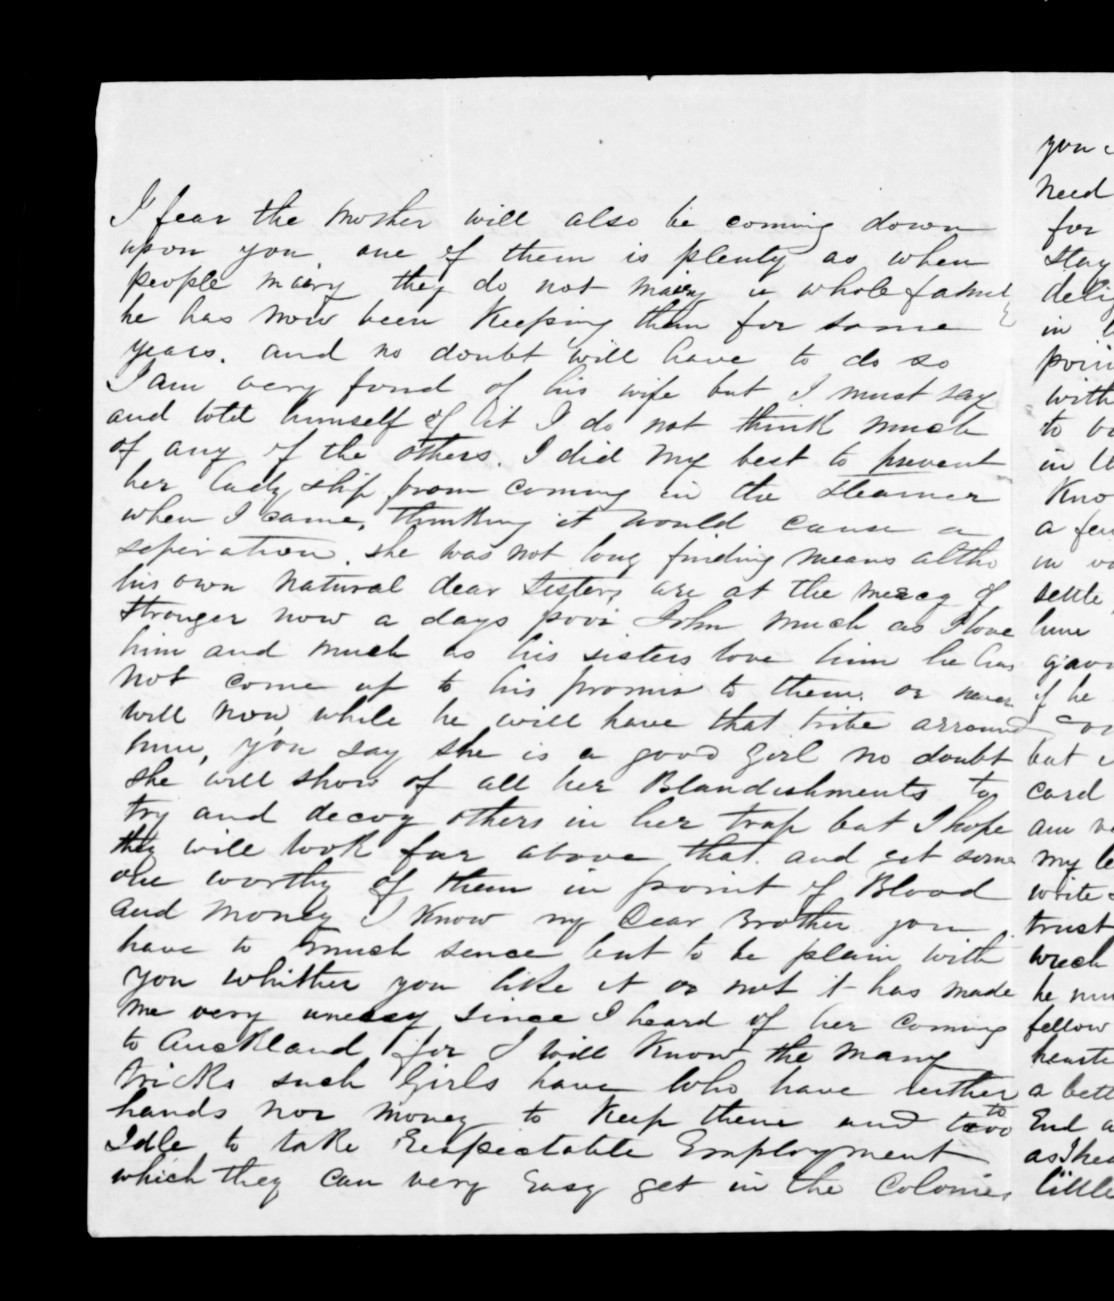 I fear the Mother will also be coming down
upon you one of them is plenty as when
people marry they do not marry a whole family
he has now been Keeping them for some
years. and no doubt will have to do so
I am very fond of his wife but I must say
and told himself of it I do not think much
of any of the others. I did my best to prevent
her Lady ship from coming in the steamer
when I came, thinking it would cause a
seperation. she was not long finding means altho
his own natural dear Sisters are at the mercy of
Stranger now a days poor John much as I love
him and much as his sisters love him he has
Not come up to his promis to them. or never
will now, while he will have that tribe arround
him, you say she is a good Girl no doubt
she will show of all her Blandishments to
try and decoy others in her trap but I hope
they will look far above that. and get some
one worthy of them in point of Blood
and Money I Know my Dear Brother you
have to much sence but to be plain with
you whither you like it or not it has made
me very unessy since I heard of her coming
to Auckland for I will Know the Many
tricks such Girls have who have neither
hands nor money to Keep them and to
Idle to take Respectable Employment
which they can very Easy get in the Colonies
you
Need
for
Stay
in
with
to
in
Kno
a
in
settle
if he
but
card
am
my
write
trust
wreck
he
fellow
a bett
End
as I hea
little